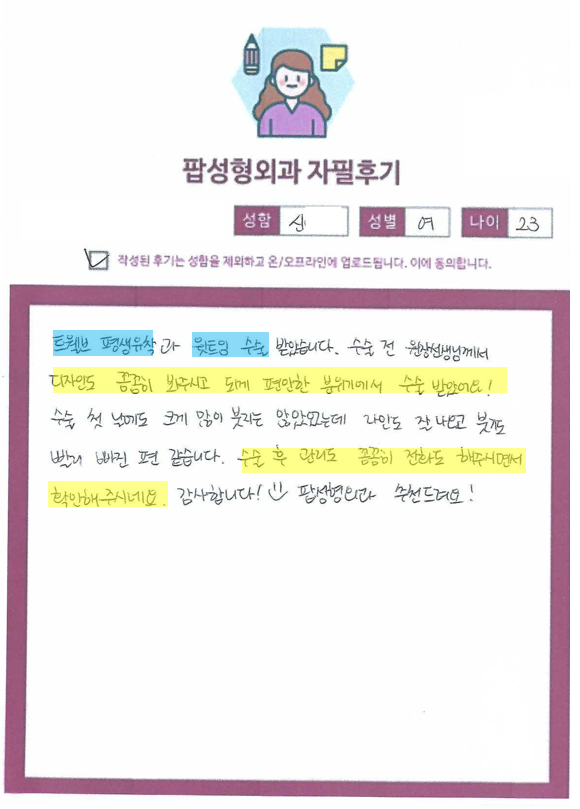 팝성형외과 자필후기
성함 신 성별 여 나이 23
작성된 후기는 성함을 제외하고 온/오프라인에 업로드됩니다. 이에 동의합니다.
트웰브 평생유착과 윗트임 수술 받았습니다. 수술 전 원장선생님께서
디자인도 꼼꼼히 봐주시고 되게 편안한 분위기에서 수술 받았어요!
수술 첫 날에도 크게 많이 붓지는 않았었는데 라인도 잘 나오고 붓기도
빨리 빠진 편 같습니다. 수술 후 관리도 꼼꼼히 전화도 해주시면서
확인해주시네요. 감사합니다! 팝성형외과 추천드려요!